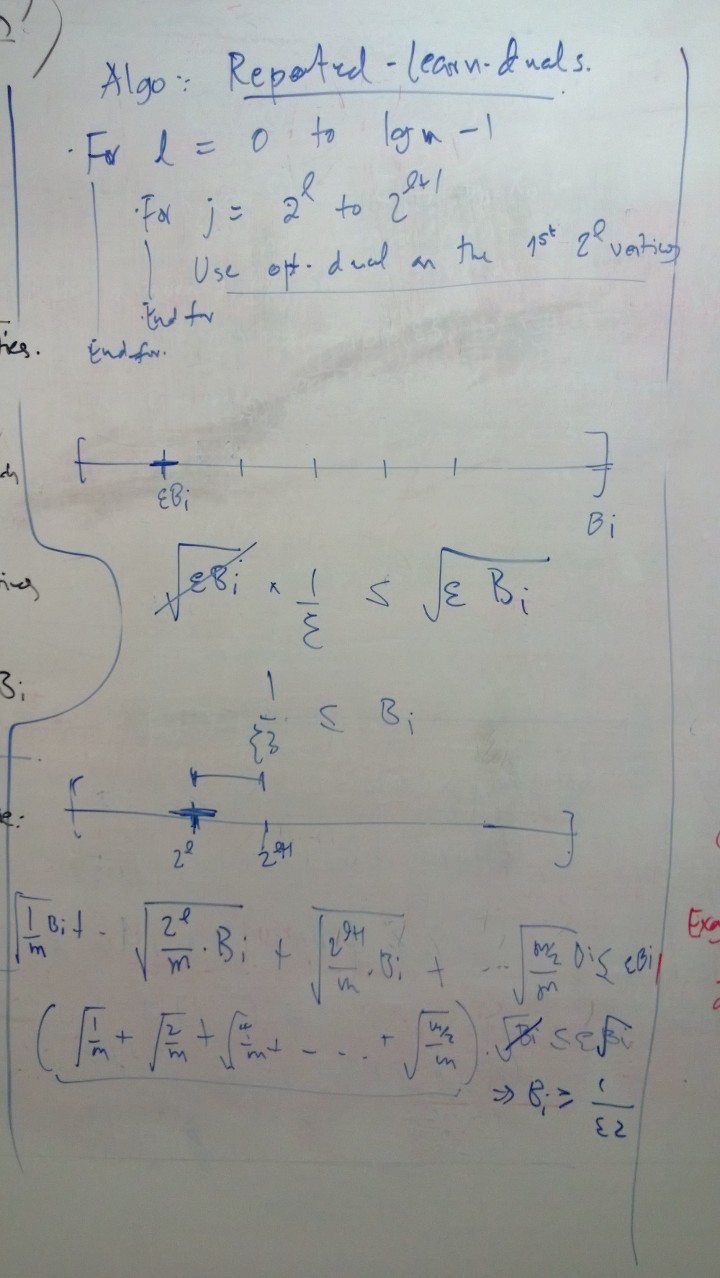 Algo:: Repeated-learn-duals.
· For l = 0 to log n - 1
· For j = 2^l to 2^{l+1}
Use opt. dual on the 1st 2^l vertices
· End for
End for.
εB_i
B_i
√(εB_i) × 1/ε ≤ √ε B_i
1/ε^3 ≤ B_i
2^l 2^{l+1}
√(1/m B_i) + - √(2^l/m · B_i) + √(2^{l+1}/m · B_i) + ... √(m/2/m B_i) ≤ εB_i
(√(1/m) + √(2/m) + √(4/m) + - ... + √(m/2/m)) · √B_i ≤ ε√B_i
⇒ B_i ≥ 1/ε^2
ties.
B_i
e:
Exa